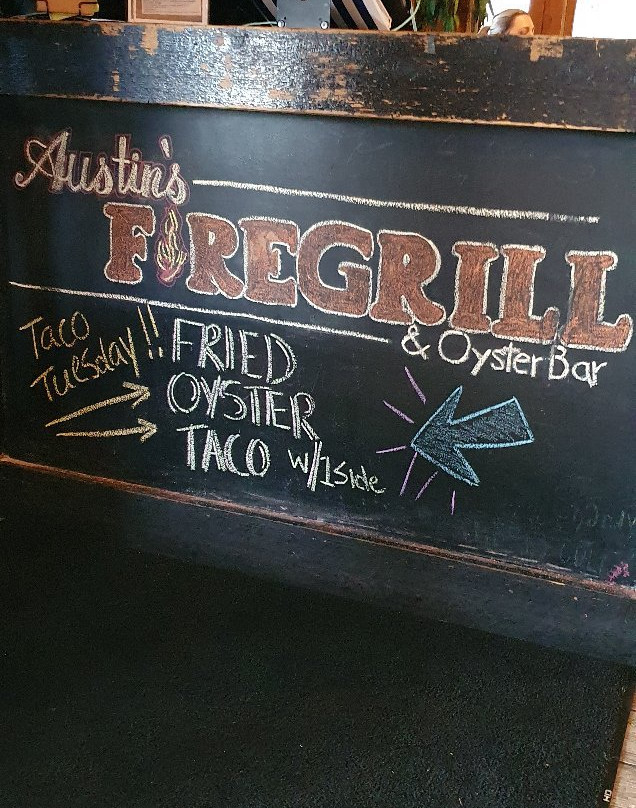 Austin's
FIREGRILL
& Oyster Bar
Taco
Tuesday!!
FRIED
OYSTER
TACO w/1 side